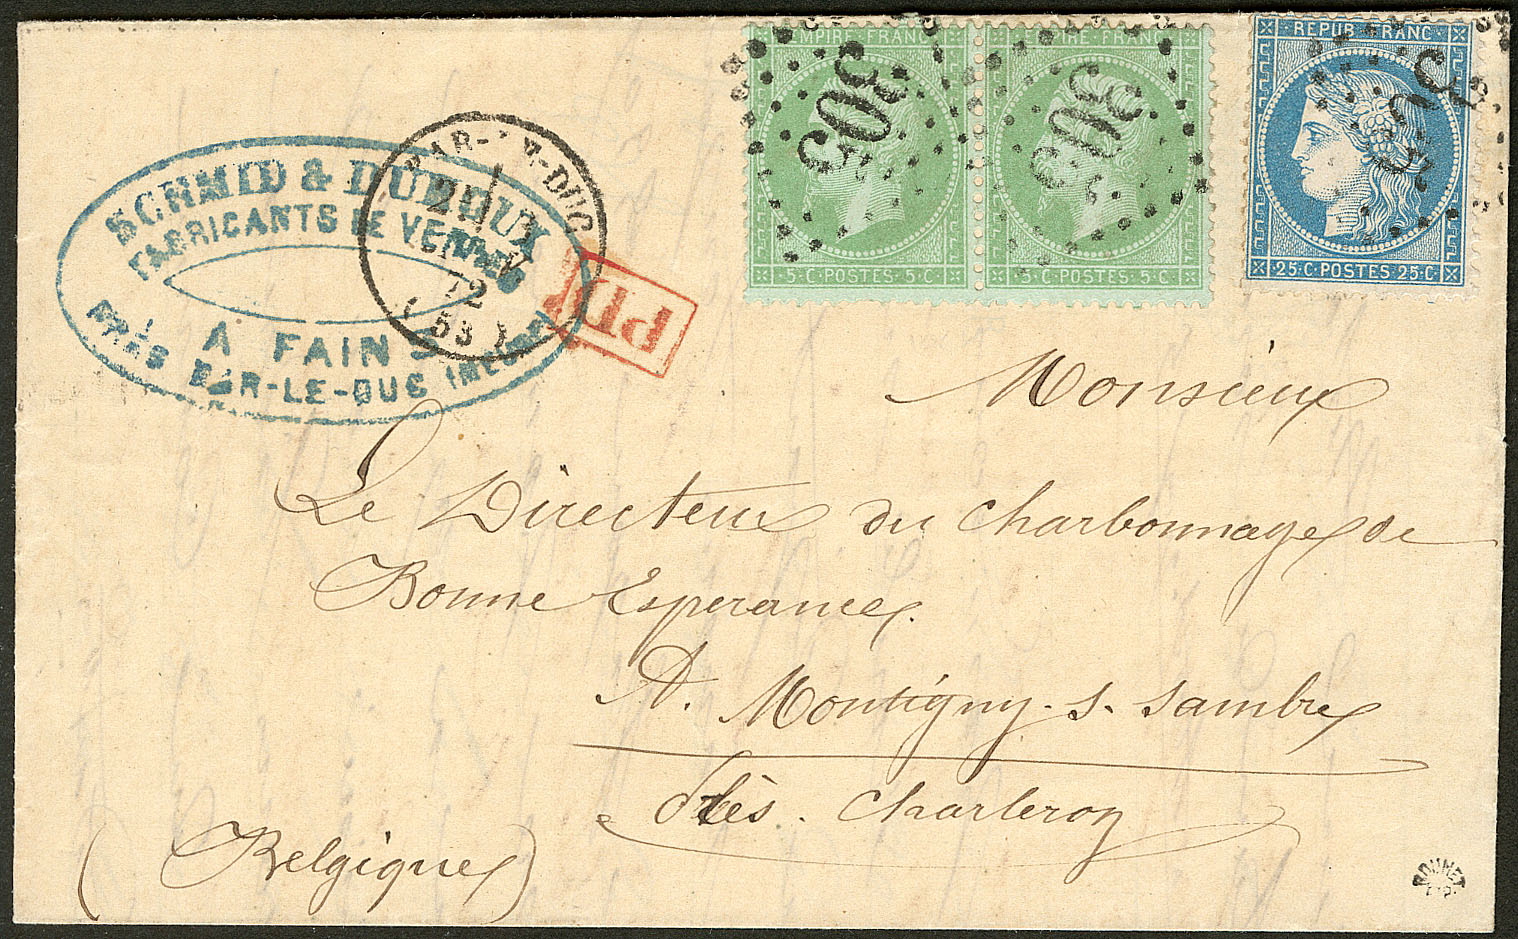 EMPIRE FRANC
EMPIRE FRANC
REPUB FRANC
303
303
5 · C · POSTES · 5 · C
5 · C · POSTES · 5 · C
25 · C · POSTES · 25 · C
BAR-LE-DUC
72
(53)
PD
SCHMID &
FABRICANTS DE VERRES
A FAINS
PRÈS BAR-LE-DUC (MEUSE)
Monsieur
Le Directeur du Charbonnage de
Bonne Esperance
A. Montigny. s. Sambre
Lès. Charleroy
(Belgique)